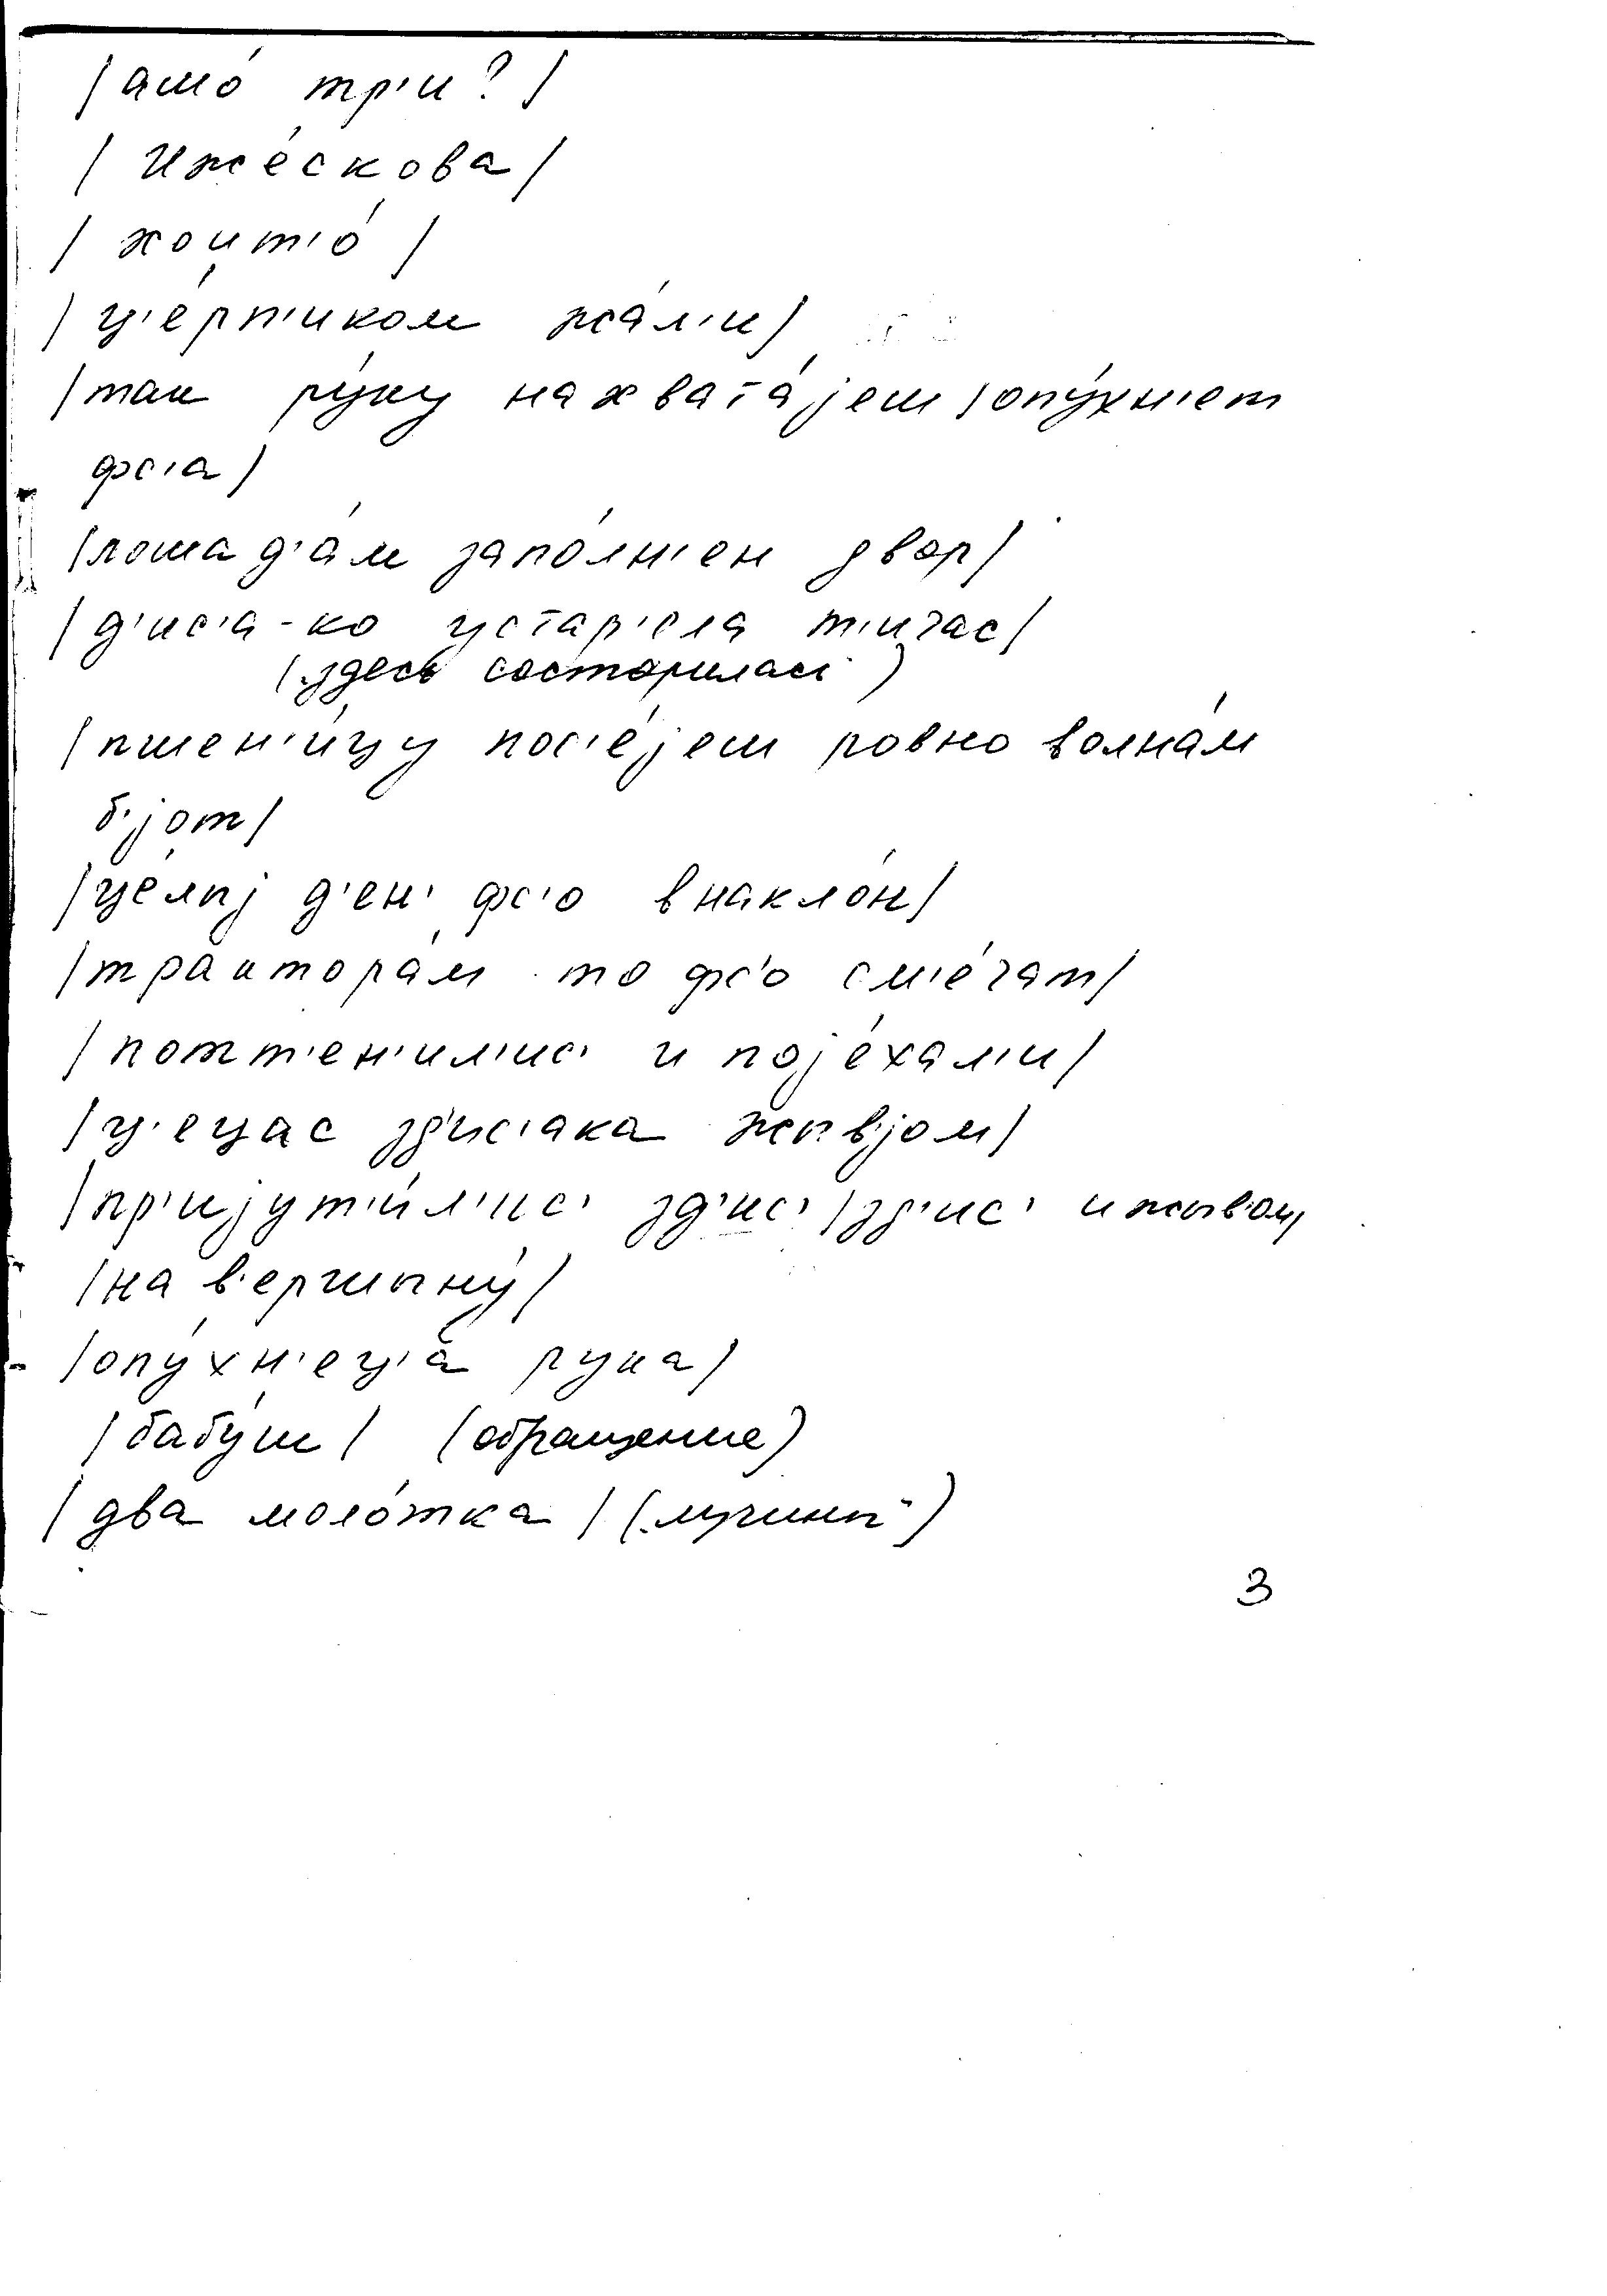 / ашо́ тр'и? /
/ иже́скова /
/ хоит'о́ /
/ ц'е́рп'иком жа́л'и /
/ так ру́ку нахвата́јеш / опу́хн'ет
фс'а /
/ лошад'а́м запо́лн'ен двор /
/ д'ис'а-ко устар'е́ла т'ичас /
(здесь состарилась)
/ пшен'и́цу пос'е́јем ровно волна́м
б'јот /
/ це́лыј д'ен' фс'о внакло́н /
/ тра́ktора́м то фс'о см'е́чат /
/ потт'ен'ил'ис' и појéхал'и /
/ ц'ецас зд'ис'ака жыв'јом /
/ пр'ијут'и́л'ис' зд'ис' / зд'ис' и жыв'ом /
/ на в'ершыну́ /
/ опу́хн'ец'а рука /
/ бабу́ш / (обращение)
/ два моло́тка / (лучины)
3